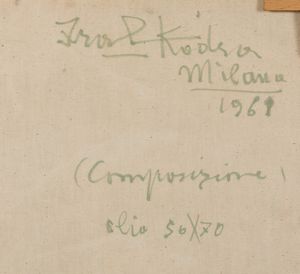 Ibrahim Kodra
Milano
1961
(Composizione)
olio 50X70